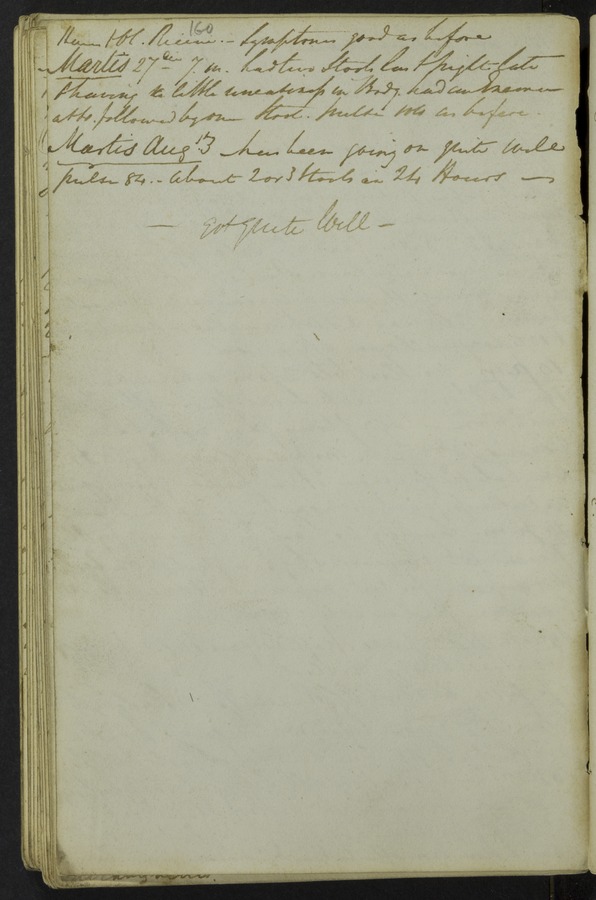 160
Haust Ol. Ricini. - Symptoms good as before
Martis 27 7. m. had two Stools last Night late
& having a little uneasiness in Body, had an Enema
at 8. followed by one Stool. Pulse as before.
Martis Aug. 3 has been going on quite well
pulse 84. - about 2 or 3 Stools in 24 Hours —
— got quite Well —